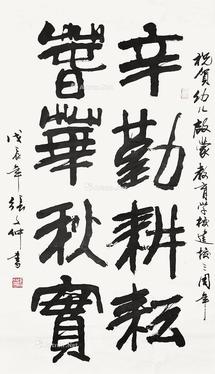 祝贺幼儿启蒙教育学校建校三周年
辛勤耕耘
春華秋實
戊辰年張文仲書